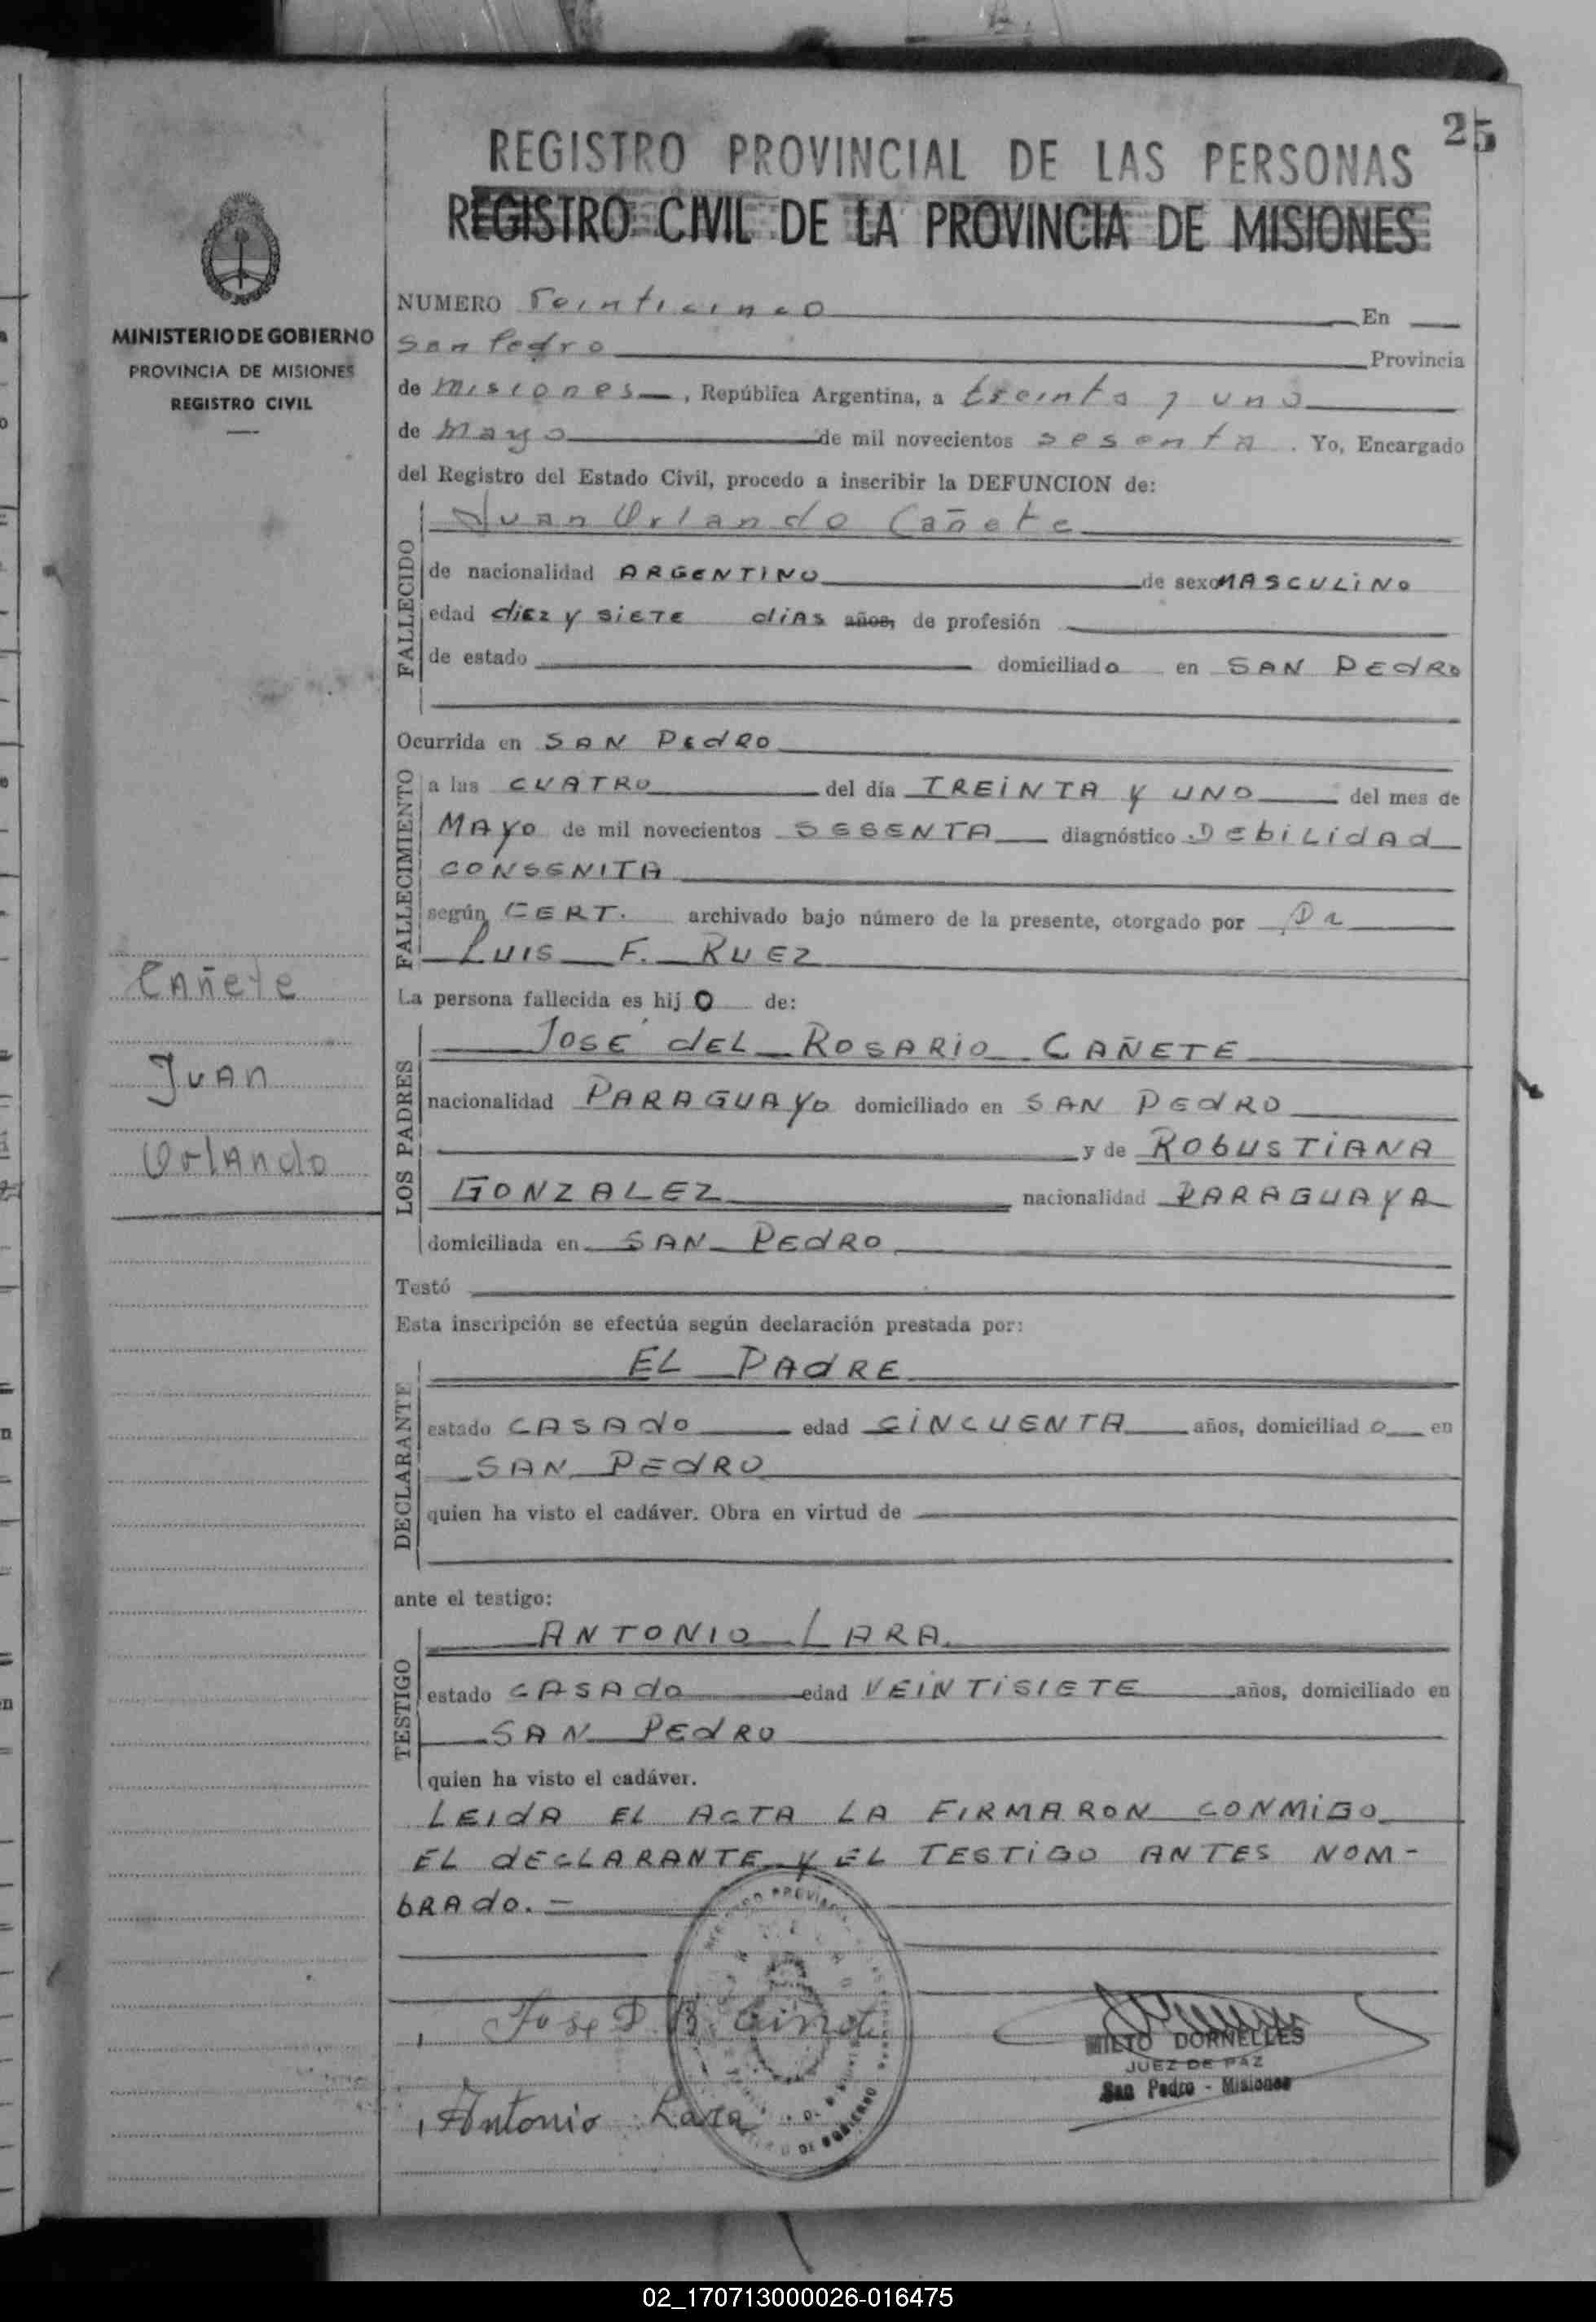 25
REGISTRO PROVINCIAL DE LAS PERSONAS
REGISTRO CIVIL DE LA PROVINCIA DE MISIONES
MINISTERIO DE GOBIERNO
PROVINCIA DE MISIONES
REGISTRO CIVIL
NUMERO Veinticinco En
San Pedro Provincia
de Misiones, República Argentina, a treinta y uno
de Mayo de mil novecientos sesenta. Yo, Encargado
del Registro del Estado Civil, procedo a inscribir la DEFUNCION de:
FALLECIDO
Juan Orlando Cañete
de nacionalidad ARGENTINO de sexo MASCULINO
edad diez y SIETE dIAS años, de profesión
de estado domiciliado en SAN PEdRO
Ocurrida en SAN PEdRO
FALLECIMIENTO
a las CUATRO del día TREINTA Y UNO del mes de
MAYO de mil novecientos SESENTA diagnóstico DEbILIdAd
CONGENITA
según CERT. archivado bajo número de la presente, otorgado por Dr
LUIS F. RUEZ
La persona fallecida es hijO de:
LOS PADRES
JOSÉ dEL ROSARIO CAÑETE
nacionalidad PARAGUAYO domiciliado en SAN PEdRO
y de ROBUSTIANA
GONZALEZ nacionalidad PARAGUAYA
domiciliada en SAN PEdRO
Cañete
Juan
Orlando
Testó
Esta inscripción se efectúa según declaración prestada por:
DECLARANTE
EL PAdRE
estado CASAdO edad CINCUENTA años, domiciliado en
SAN PEdRO
quien ha visto el cadáver. Obra en virtud de
ante el testigo:
TESTIGO
ANTONIO LARA
estado CASAdO edad VEINTISIETE años, domiciliado en
SAN PEdRO
quien ha visto el cadáver.
LEIdA EL ACTA LA FIRMARON CONMIGO
EL dECLARANTE Y EL TESTIGO ANTES NOM-
bRAdO.-
Jose D. R.
MILTO DORNELLES
JUEZ DE PAZ
San Pedro - Misiones
Antonio Lara
02_170713000026-016475